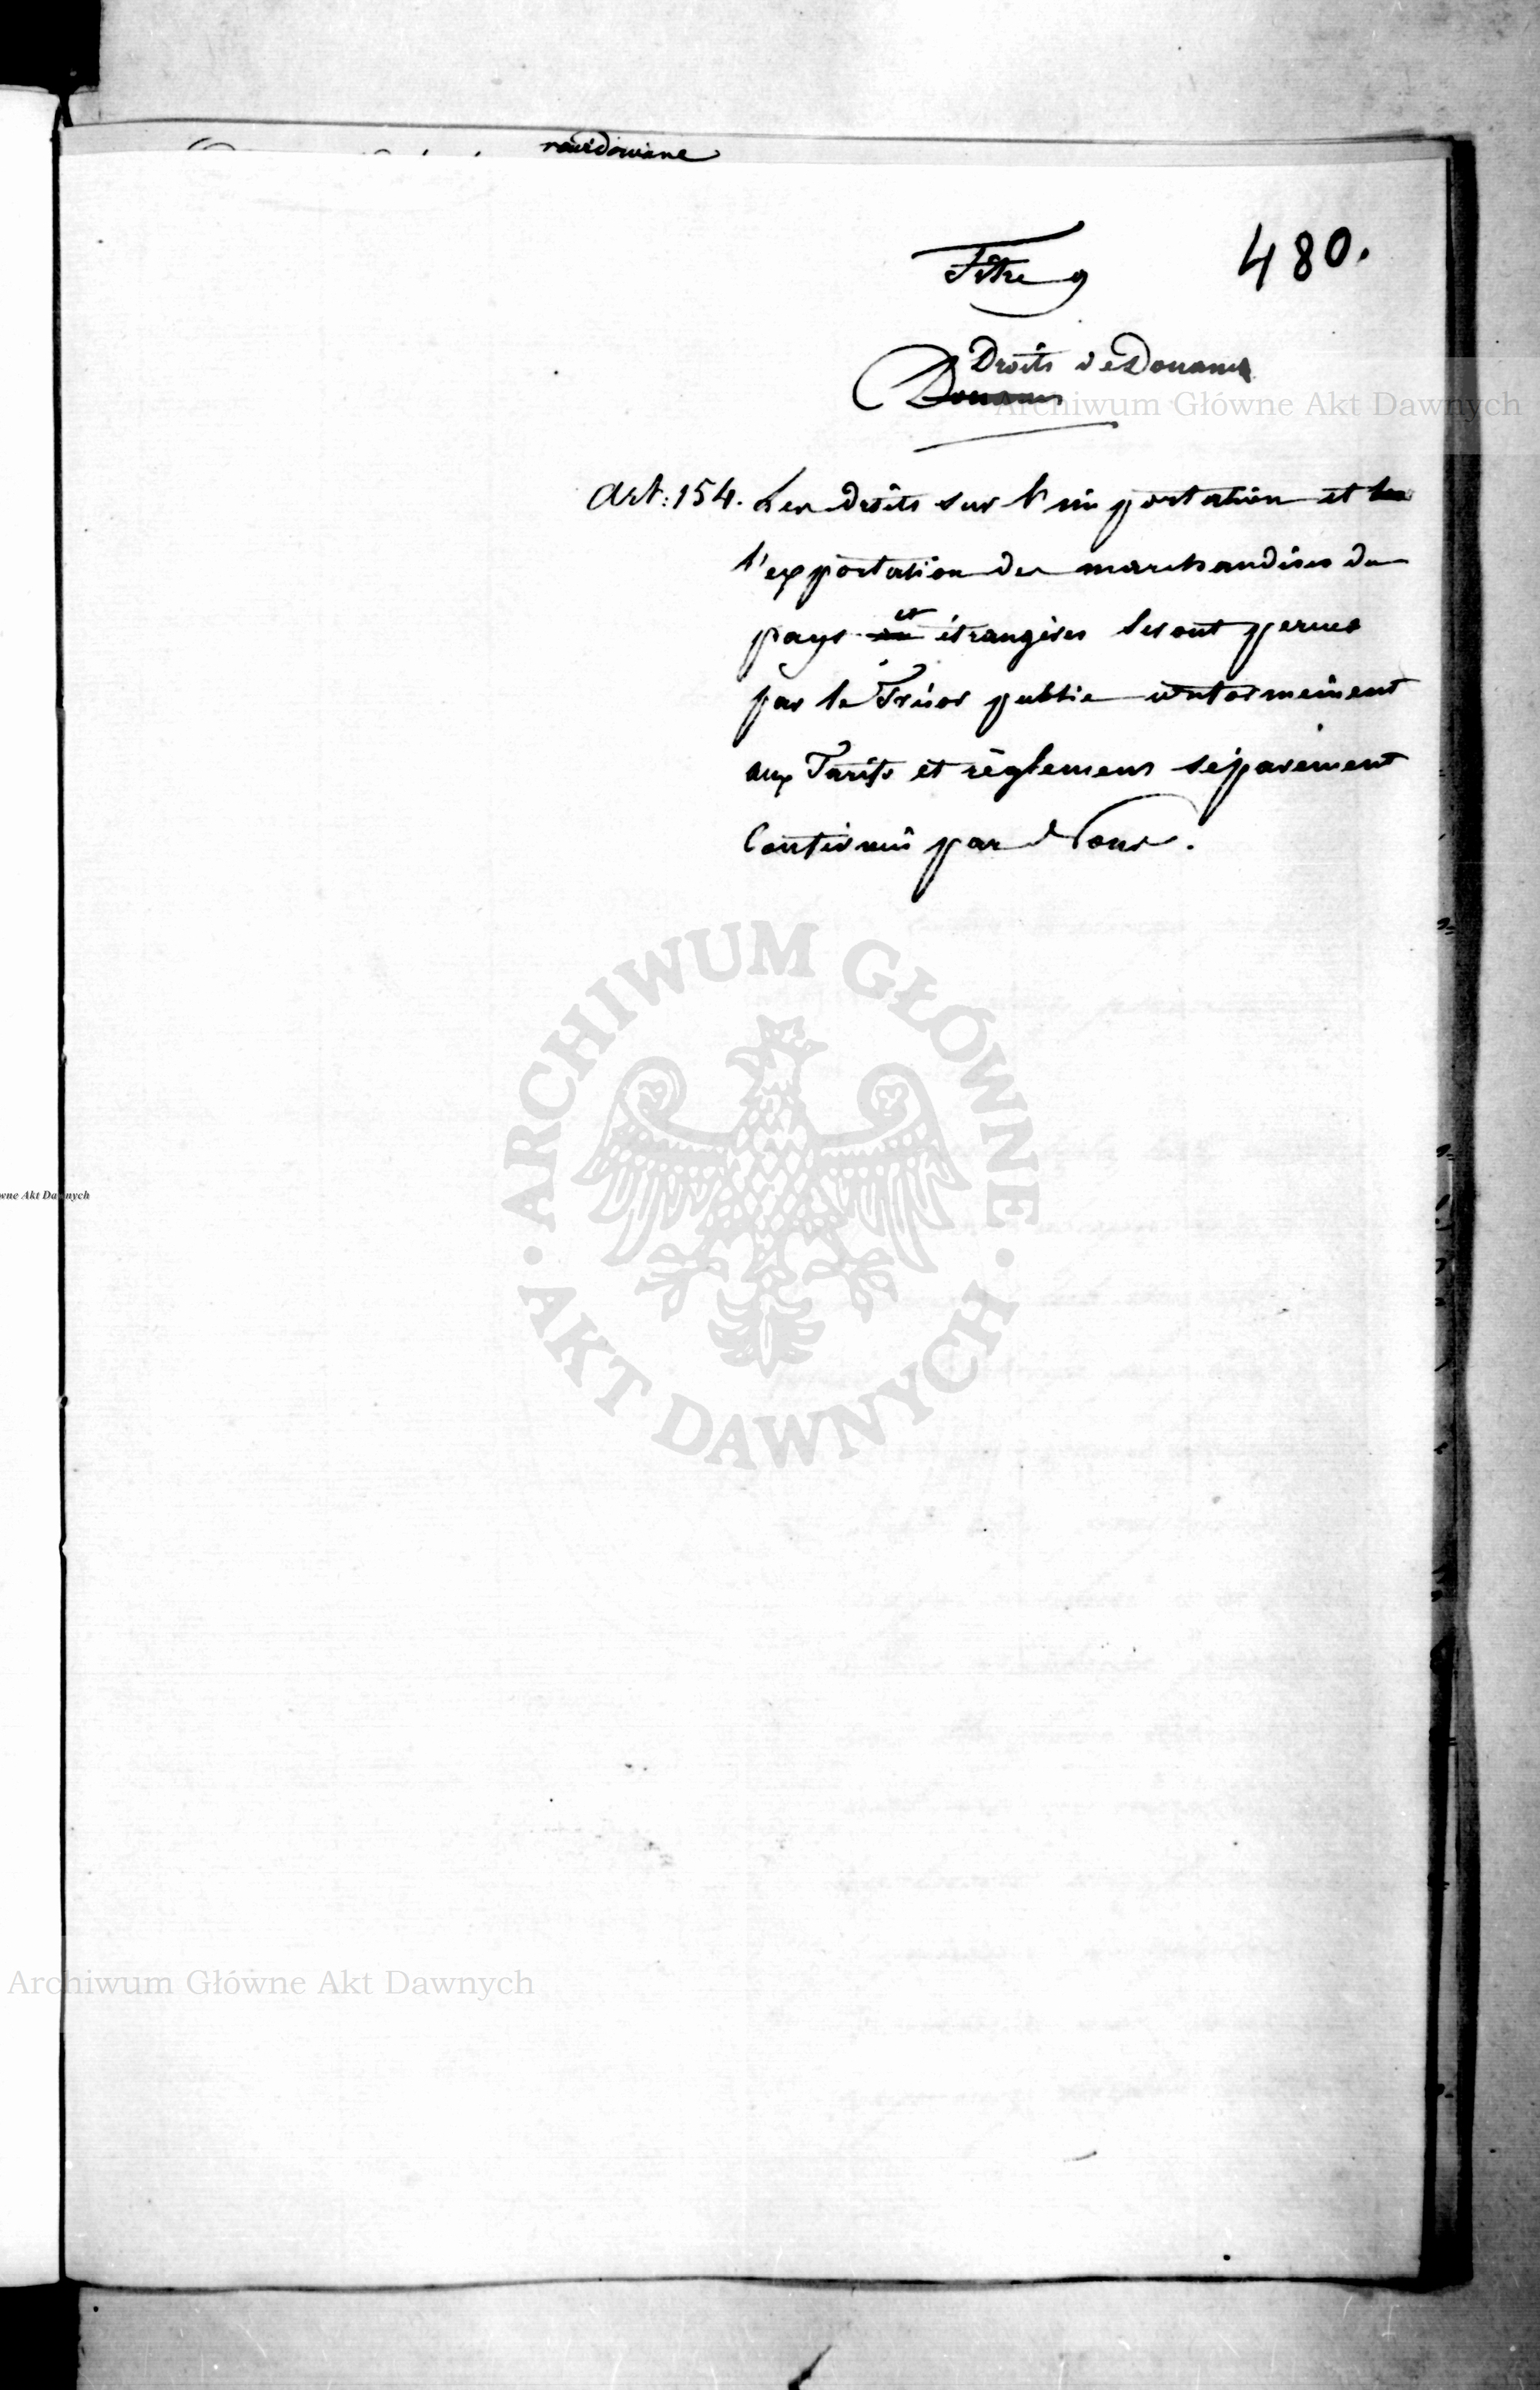 480.
Titre 9
Droits de Douanes
Douanes
Art: 154. Les droits sur l'importation et les
l'exportation des marchandises du
pays et étrangères seront perçus
par le Trésor public conformément
aux Tarifs et règlemens séparément
Confirmés par Nous.
Archiwum Główne Akt Dawnych
ARCHIWUM GŁÓWNE
AKT DAWNYCH
wne Akt Dawnych
Archiwum Główne Akt Dawnych